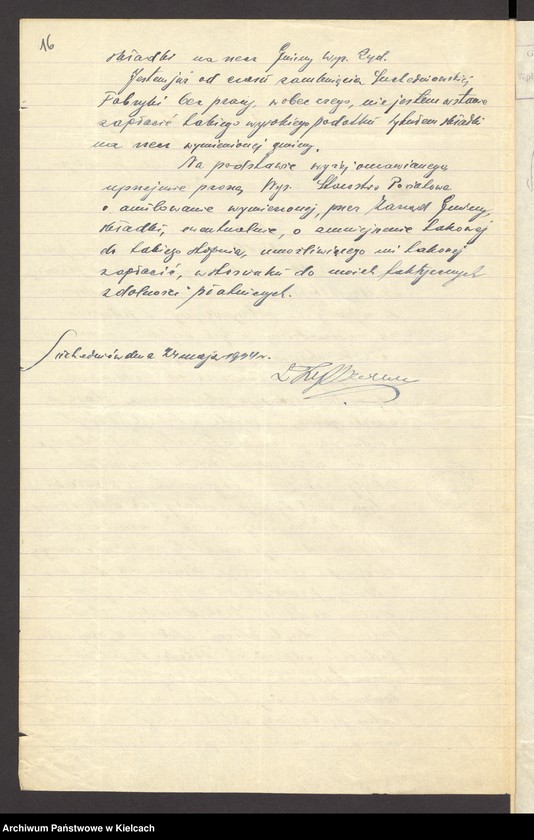 16
składki na rzecz Gminy Wyz. Żyd.
Jestem już od czasu zamknięcia Suchedniowskiej
Fabryki bez pracy, wobec czego, nie jestem w stanie
zapłacić takiego wysokiego podatku tytułem składki
na rzecz wymienionej gminy.
Na podstawie wyżej omawianego
uprzejmie proszę Wys. Starostwo Powiatowe
o anulowanie wymienionej, przez Zarząd Gminy,
składki, ewentualnie, o zmniejszenie takowej
do takiego stopnia, umożliwiającego mi takową
zapłacić, w stosunku do moich faktycznych
zdolności płatniczych.
Suchedniów dnia 24 maja
Archiwum Państwowe w Kielcach